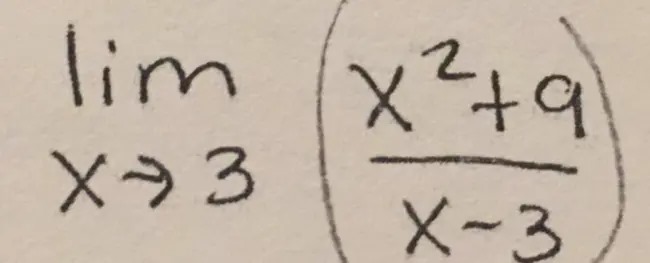 lim x→3 (x²+9 / x-3)